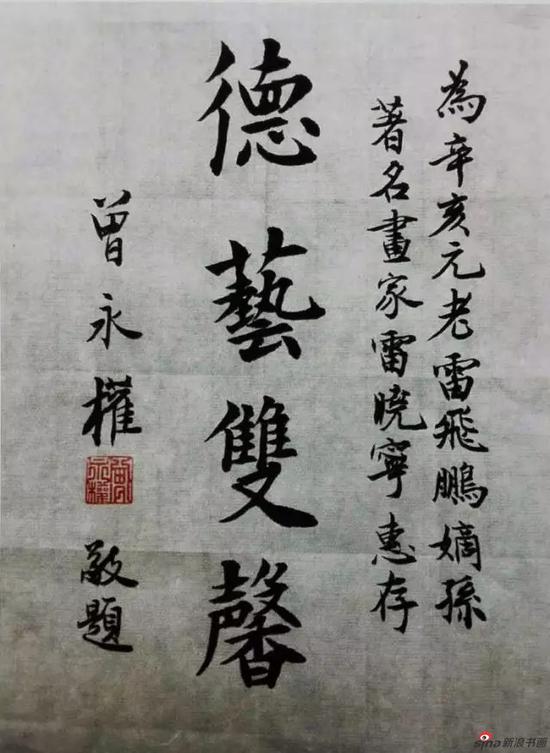 為辛亥元老雷飛鵬嫡孫
著名畫家雷曉寧惠存
德藝雙馨
曾永權
敬題
sina新浪书画